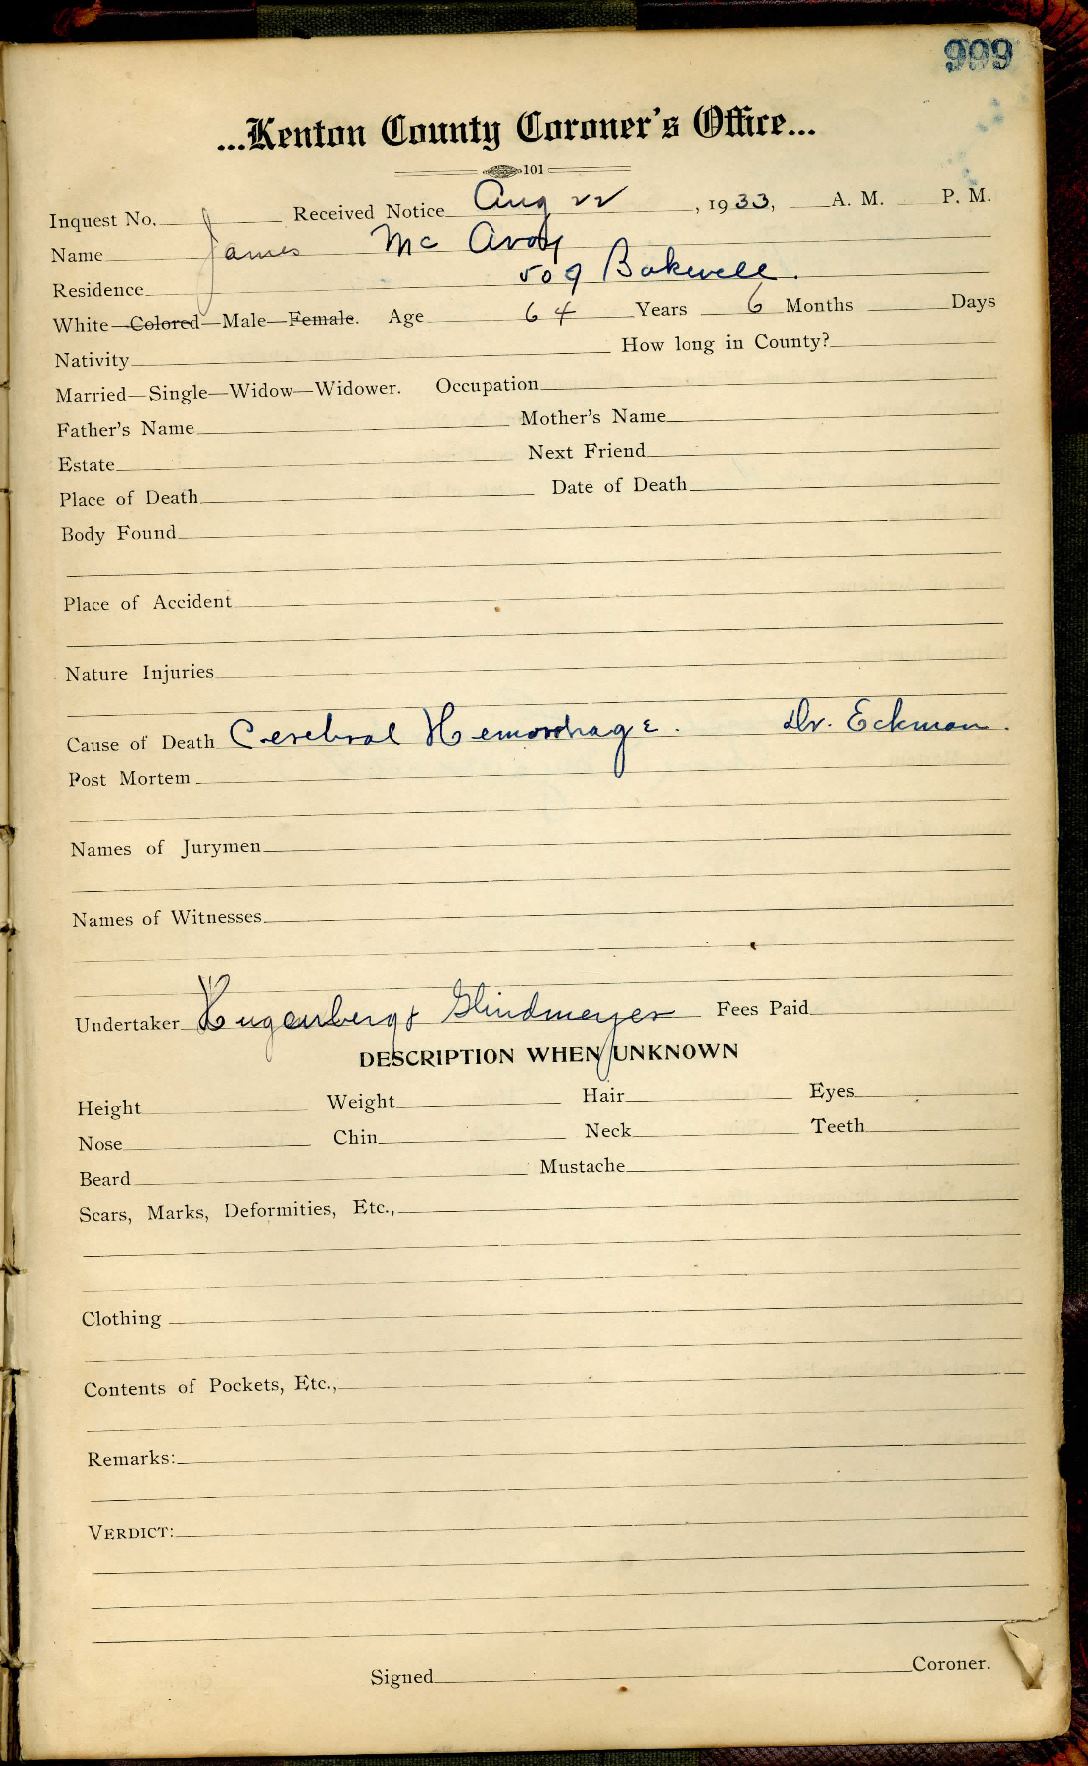 999
...Kenton County Coroner's Office...
101
Inquest No. Received Notice Aug 22, 1933, A. M. P. M.
Name James Mc Avoy
Residence 509 Bakewell.
White—Colored—Male—Female. Age 64 Years 6 Months Days
Nativity How long in County?
Married—Single—Widow—Widower. Occupation
Father's Name Mother's Name
Estate Next Friend
Place of Death Date of Death
Body Found
Place of Accident
Nature Injuries
Cause of Death Cerebral Hemorrhage. Dr. Eckman.
Post Mortem
Names of Jurymen
Names of Witnesses
Undertaker Hugenberg & Glindmeyer Fees Paid
DESCRIPTION WHEN UNKNOWN
Height Weight Hair Eyes
Nose Chin Neck Teeth
Beard Mustache
Scars, Marks, Deformities, Etc.,
Clothing
Contents of Pockets, Etc.,
Remarks:
VERDICT:
Signed Coroner.